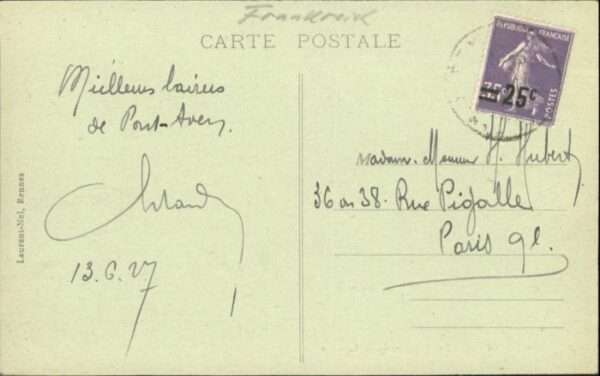 Frankreich
CARTE POSTALE
REPUBLIQUE FRANÇAISE
25c
POSTES
Meilleurs baisers
de Pont-Aven.
13.6.27
Madame, Monsieur H. Hubert
36 ou 38. Rue Pigalle
Paris 9e.
Laurent-Nel, Rennes